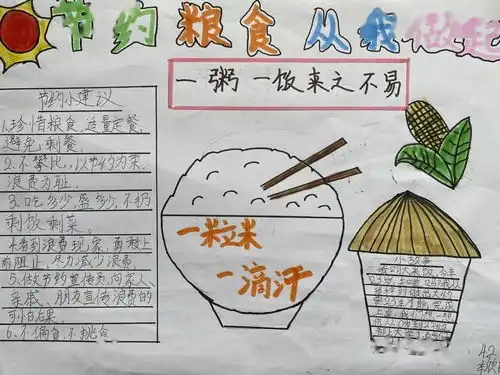 节约粮食 从我做起
一粥一饭来之不易
节约小建议
1.珍惜粮食,适量定餐,
避免剩餐
2.不攀比,以节约为荣,
浪费为耻。
3.吃多少盛多少,不扔
剩饭剩菜。
4.看到浪费现象,勇敢上
前阻止,尽力减少浪费。
5.做节约宣传员,向家人、
亲戚、朋友宣传浪费的
可怕后果。
6.不偏食,不挑食
一粒米
一滴汗
小故事